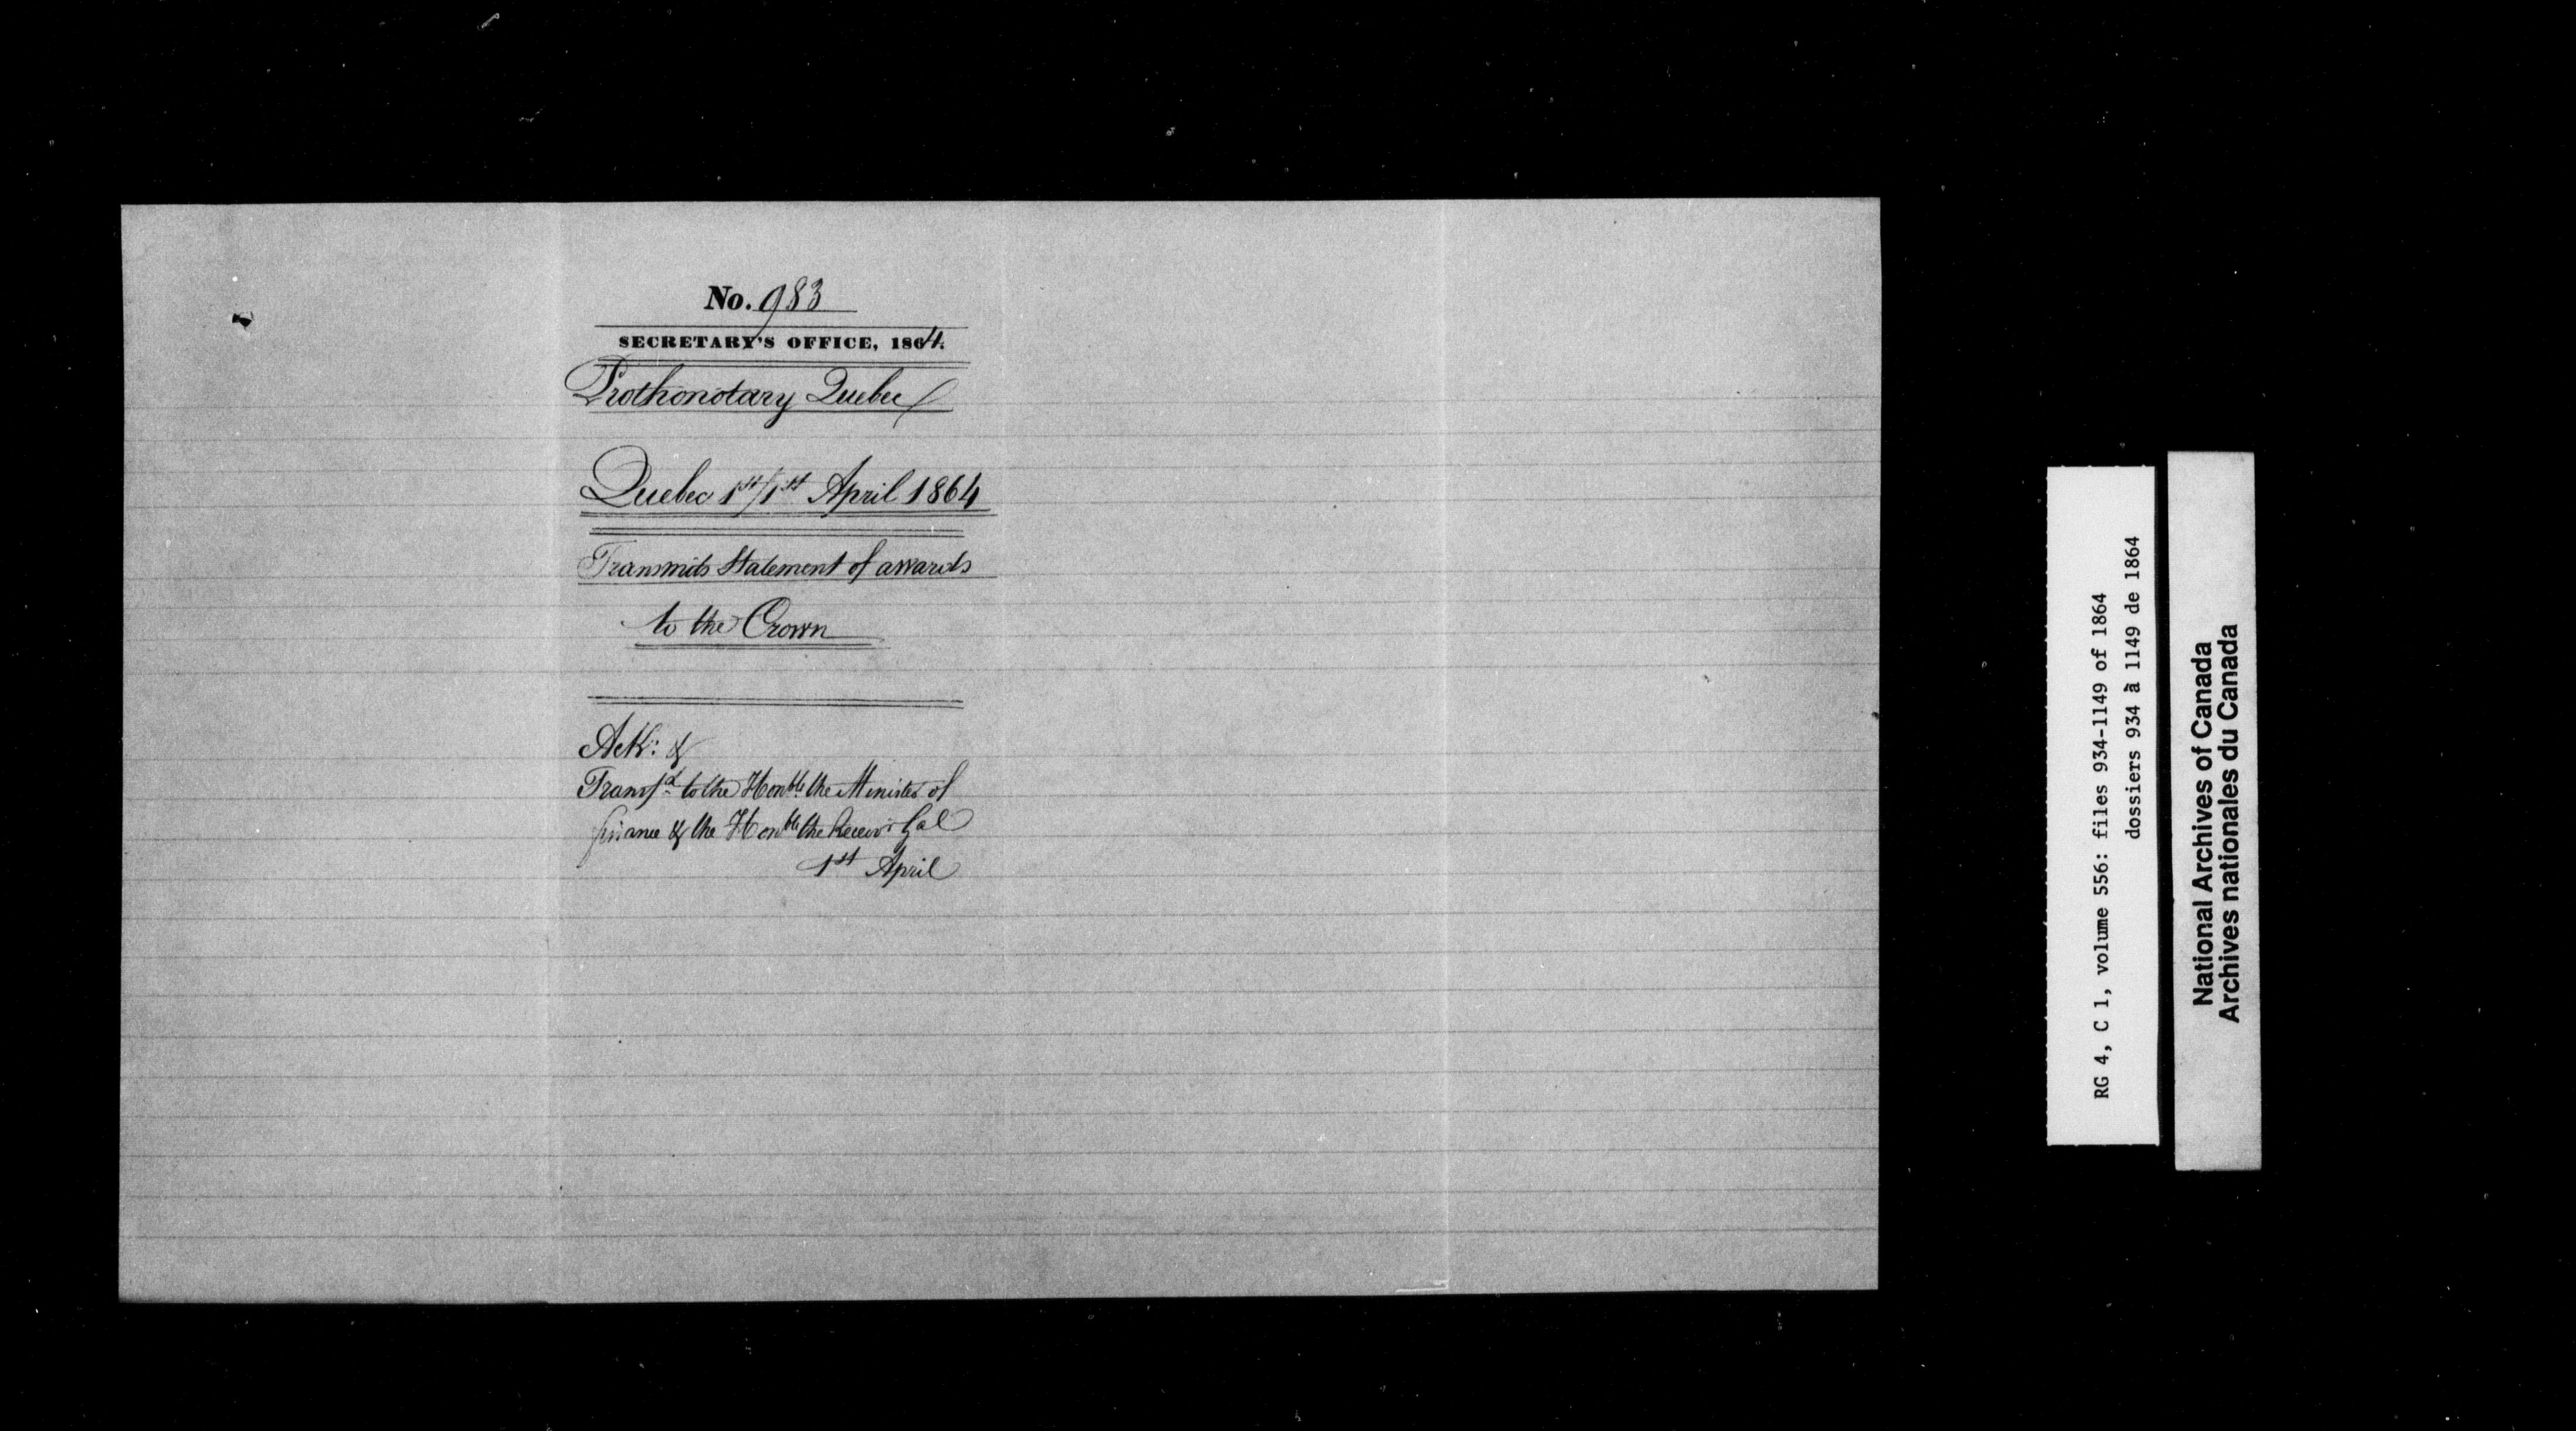 No. 983
SECRETARY'S OFFICE, 1864.
Prothonotary Quebec
Quebec 1st/1st April 1864
Transmits Statement of awards
to the Crown
Ack: &
Transfd to the Honble the Minister of
finance & the Honble the Receivr Gal
1st April
RG 4, C 1, volume 556: files 934-1149 of 1864
dossiers 934 à 1149 de 1864
National Archives of Canada
Archives nationales du Canada